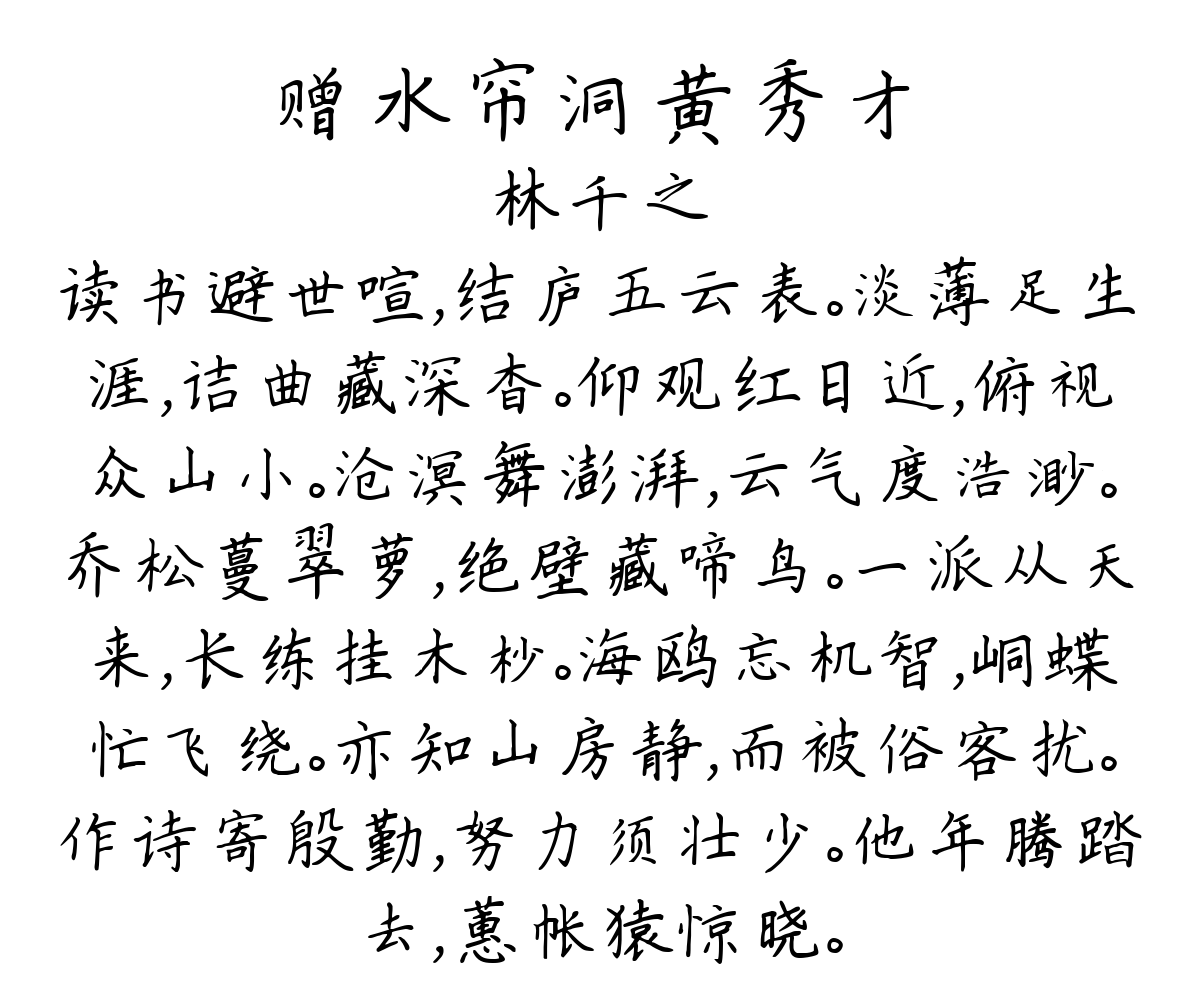 赠水帘洞黄秀才
林千之
读书避世喧,结庐五云表。淡薄足生
涯,诘曲藏深杳。仰观红日近,俯视
众山小。沧溟舞澎湃,云气度浩渺。
乔松蔓翠萝,绝壁藏啼鸟。一派从天
来,长练挂木杪。海鸥忘机智,峒蝶
忙飞绕。亦知山房静,而被俗客扰。
作诗寄殷勤,努力须壮少。他年腾踏
去,蕙帐猿惊晓。